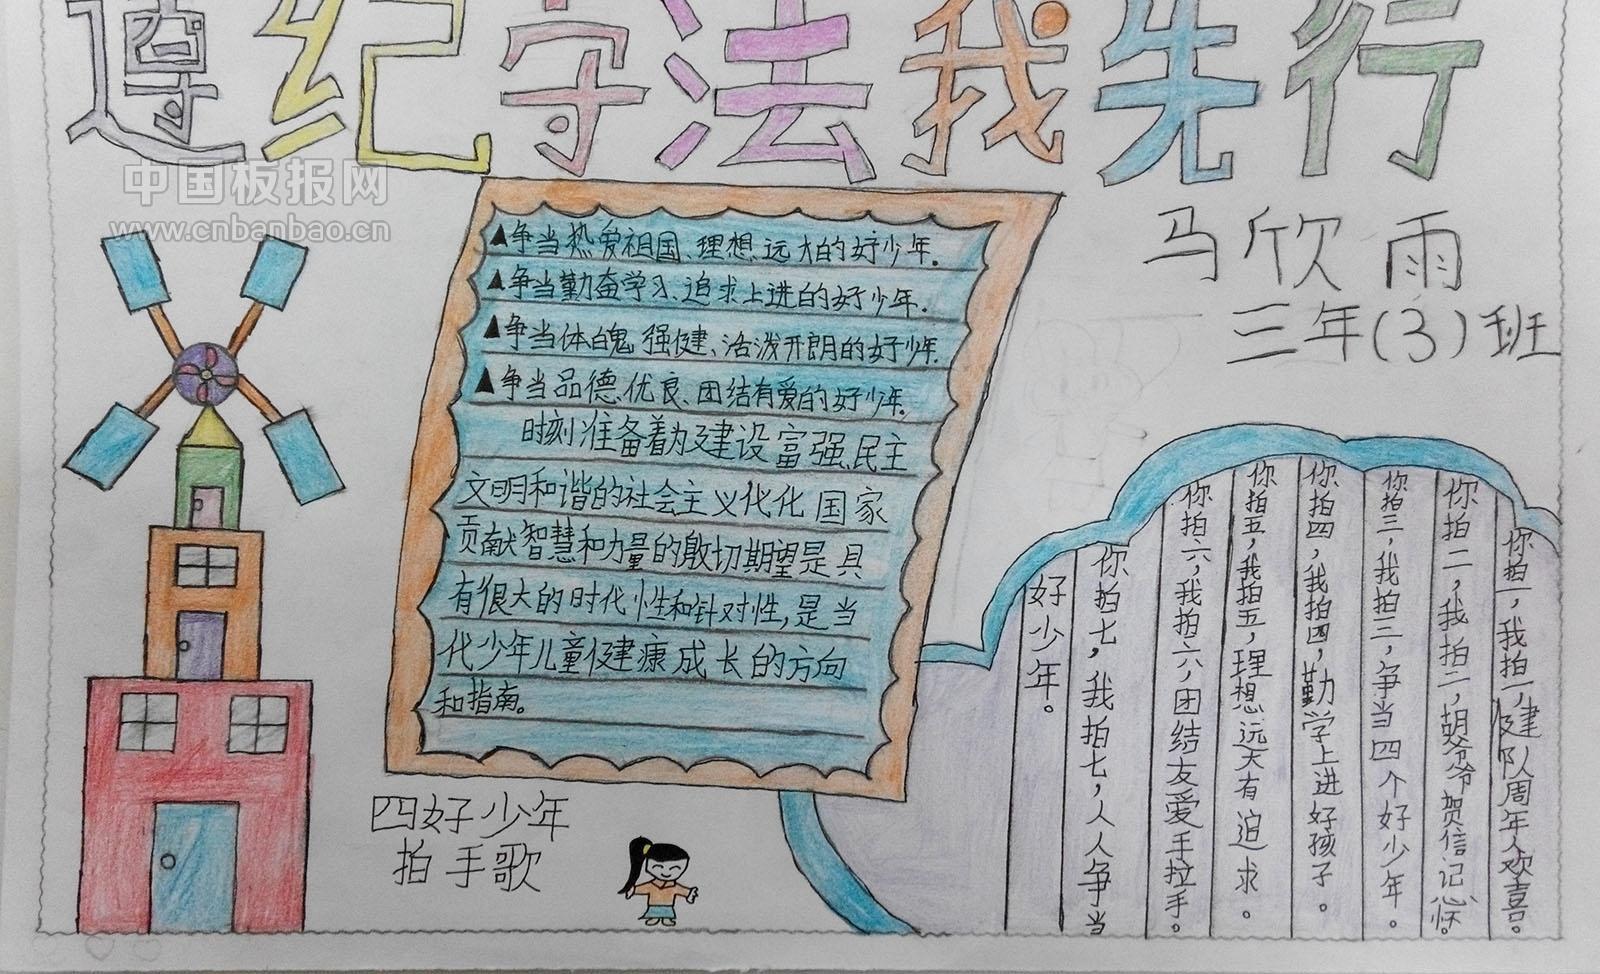 遵纪守法我先行
中国板报网
www.cnbanbao.cn
马欣雨
三年(3)班
▲争当热爱祖国、理想远大的好少年.
▲争当勤奋学习、追求上进的好少年.
▲争当体魄强健、活泼开朗的好少年.
▲争当品德优良、团结有爱的好少年.
时刻准备着为建设富强、民主
文明和谐的社会主义化化国家
贡献智慧和力量的敢切期望是具
有很大的时代性和针对性,是当
代少年儿童健康成长的方向
和指南。
四好少年
拍手歌
你拍一,我拍一,健队周年人欢喜。
你拍二,我拍二,胡爷爷贺信记心怀。
你拍三,我拍三,争当四个好少年。
你拍四,我拍四,勤学上进好孩子。
你拍五,我拍五,理想远大有追求。
你拍六,我拍六,团结友爱手拉手。
你拍七,我拍七,人人争当
好少年。